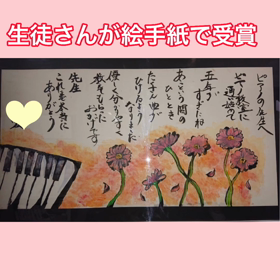 生徒さんが絵手紙で受賞
ピアノの先生へ
ピアノ教室に
通い始めて
五年が
すぎた
あっという間の
ひととき
たくさん曲が
ひけるように
なりました
優しく分かりやすく
教えて下さった
おかげです
先生
これも本当に
ありがとう